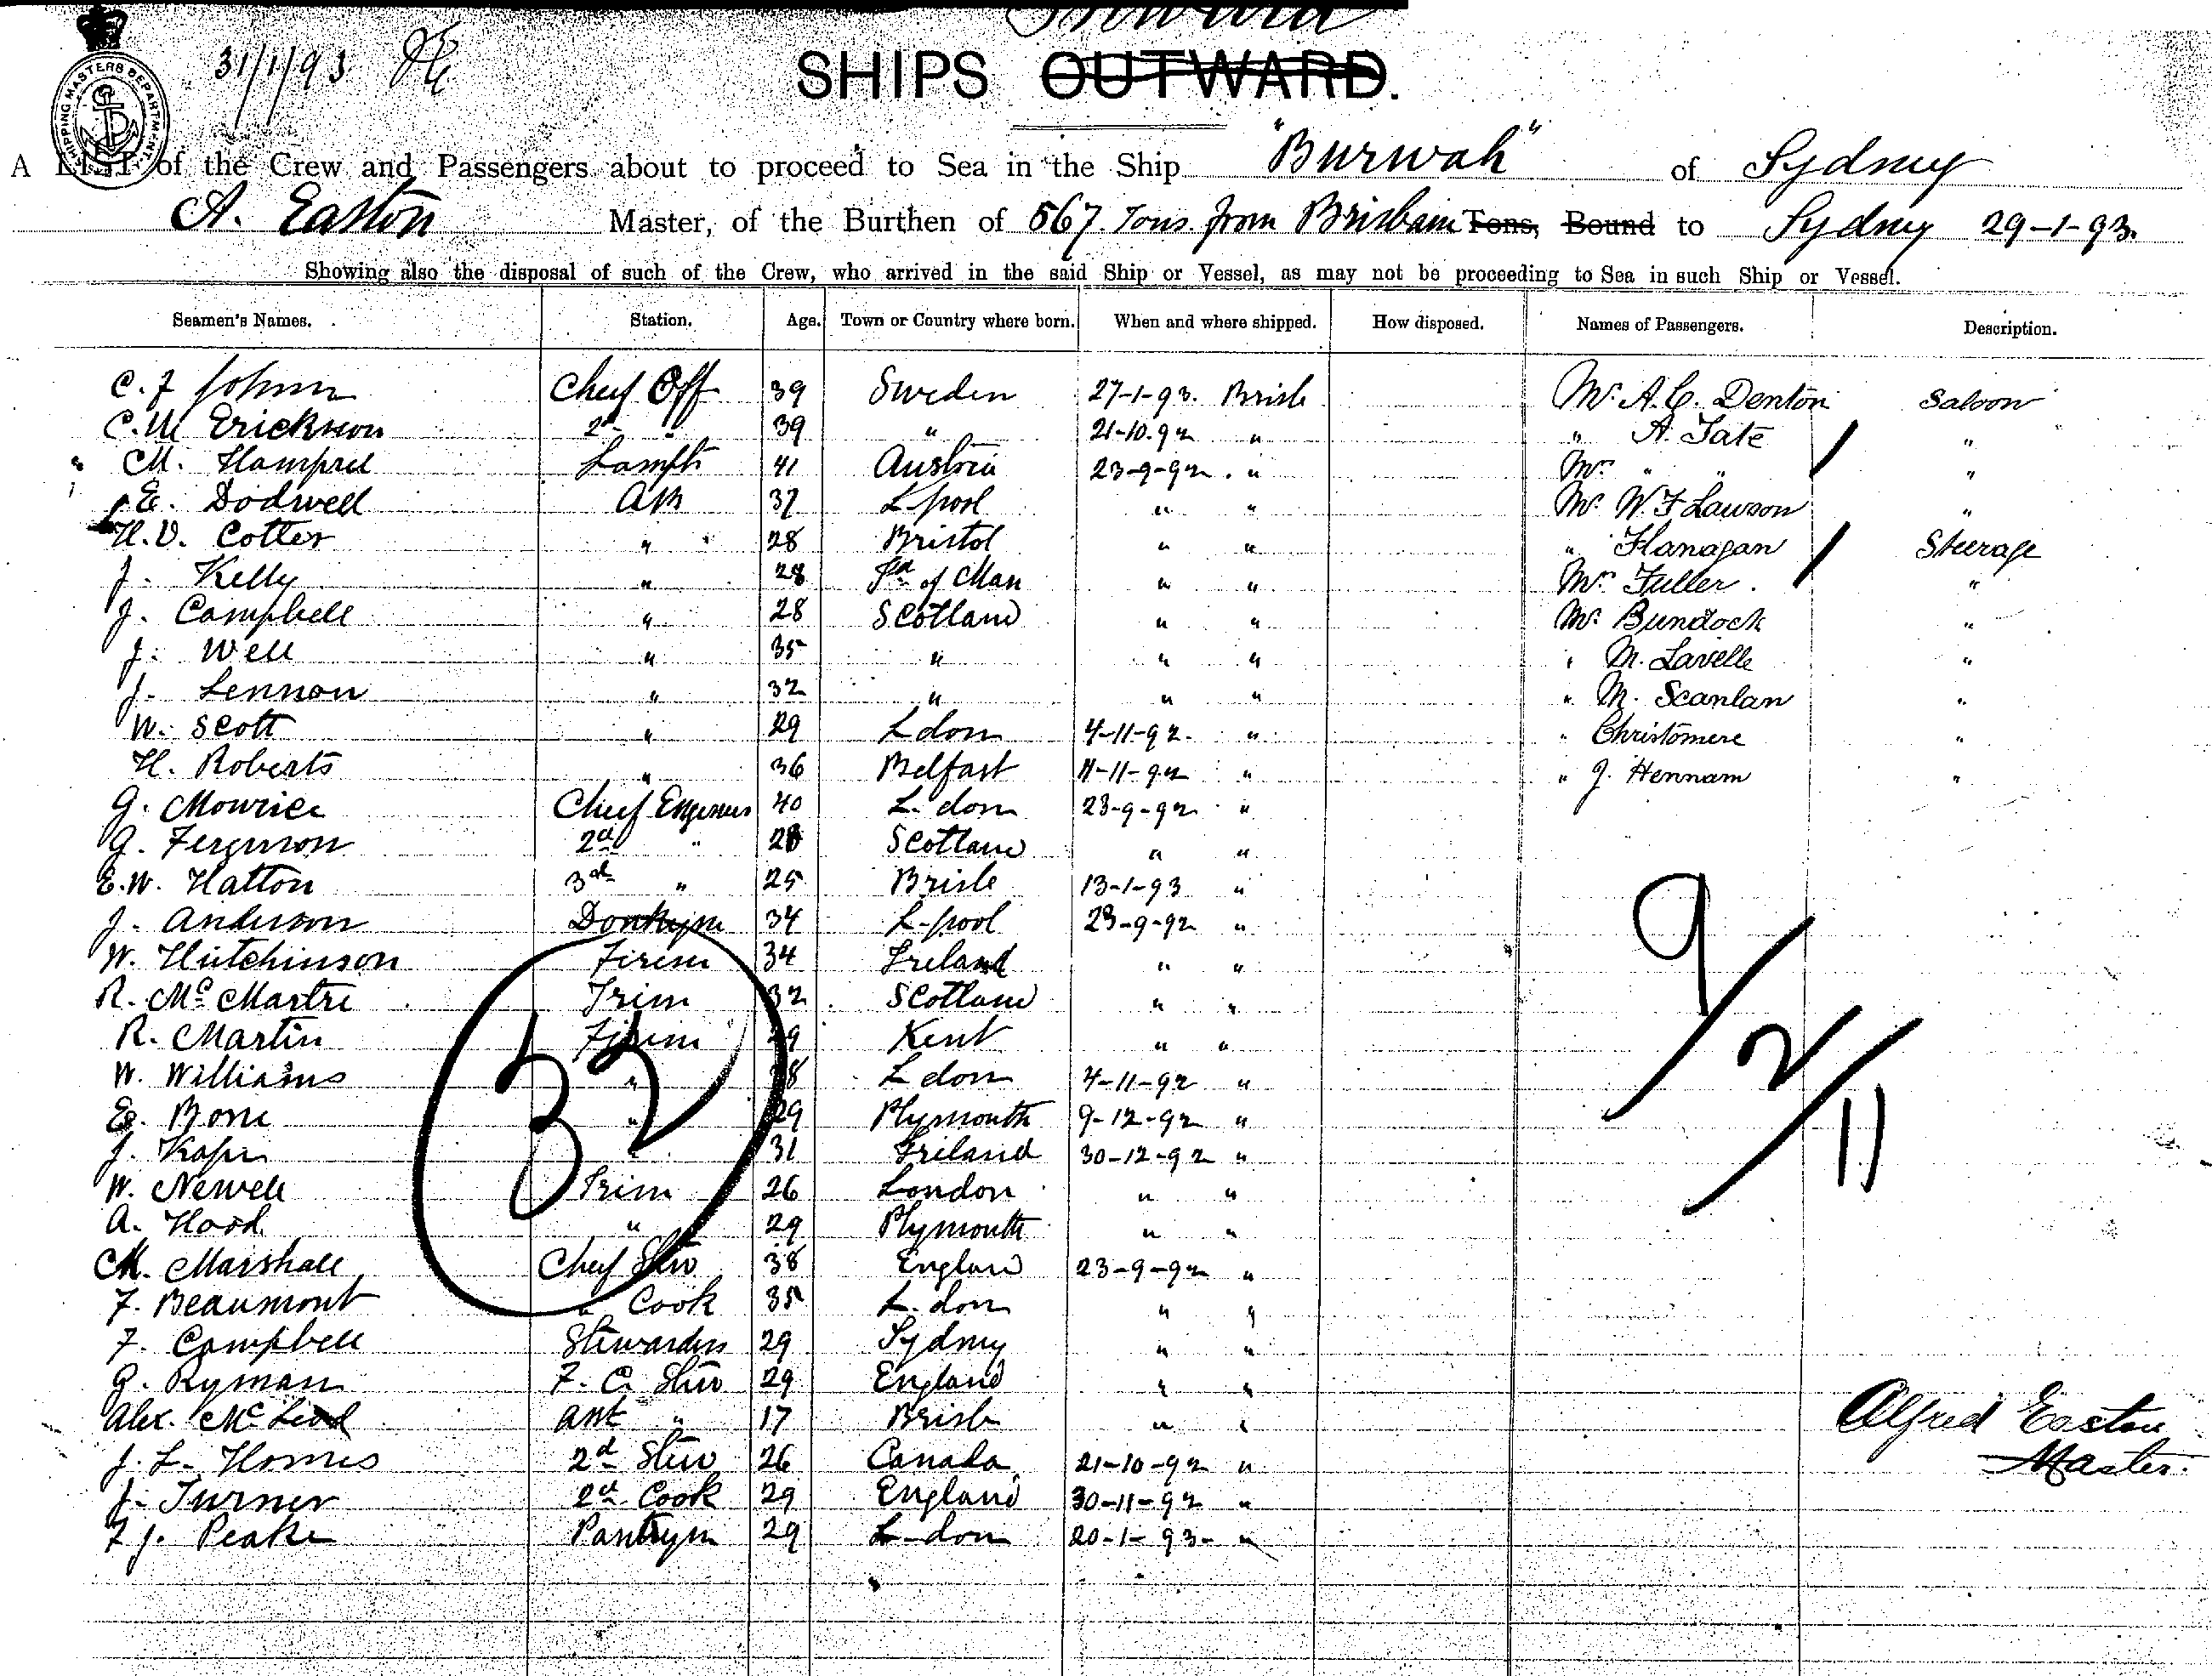 Inward
31/1/93
SHIPS OUTWARD.
SHIPPING MASTERS DEPARTMENT
A LIST of the Crew and Passengers about to proceed to Sea in the Ship "Burwah" of Sydney
A. Easton Master, of the Burthen of 567 Tons from Brisbain Tons, Bound to Sydney 29-1-93.
Showing also the disposal of such of the Crew, who arrived in the said Ship or Vessel, as may not be proceeding to Sea in such Ship or Vessel.
Seamen's Names. Station. Age. Town or Country where born. When and where shipped. How disposed. Names of Passengers. Description.
C. J Chief Off 39 Sweden 27-1-93. Brisb Mr. A. C. Denton Saloon
C. M Erickson 2nd " 39 " 21-10-92 " " A. Tate "
M. Lampt 41 Austria 23-9-92 " Mrs " " "
E. Dodwell AB 37 L-pool " " Mr. W. F Lawson "
H. V. Cotter " 28 Bristol " " " Flanagan Steerage
J. Kelly " 28 of Man " " Mrs Fuller "
J. Campbell " 28 Scotland " " Mr. Bundock "
J. Well " 35 " " " " M. Lavelle "
J. Lennon " 32 " " " " M. Scanlan "
W. Scott " 29 L don 4-11-92 " " Christomere "
H. Roberts " 36 Belfast 11-11-92 " " J. Hennam "
G. Mowrice Chief Engineer 40 L. don 23-9-92 "
G. Ferguson 2nd " 28 Scotland " "
E. W. Hatton 3rd " 25 Brisb 13-1-93 "
J. Anderson Donkym 34 L-pool 23-9-92 "
W. Hutchinson Firem 34 Ireland " "
R. McMartre Trim 32 Scotland " "
R. Martin Firem 29 Kent " "
W. Williams " 38 L don 4-11-92 "
E. Bone " 29 Plymouth 9-12-92 "
J. " 31 Ireland 30-12-92 "
W. Newell Trim 26 London " "
A. Hood " 29 Plymouth " "
M. Marshall Chief Stew 38 England 23-9-92 "
F. Beaumont " Cook 35 L. don " "
F. Campbell Stewardess 29 Sydney " "
G. Ryman F. C. Stew 29 England " "
Alex. McLeod Ast " 17 Brisb " "
J. L. Homes 2d Stew 26 Canada 21-10-92 "
J. Turner 2nd Cook 29 England 30-11-92 "
F J. Peake Pantrym 29 L-don 20-1-93- "
32
9/2/11
Alfred Easton
Master.